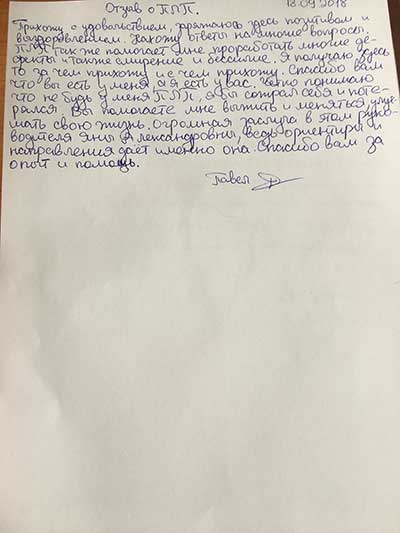 Отзыв о ПЛП. 18.09.2018
Прихожу с удовольствием, заряжаюсь здесь позитивом и
выздоровлением. Нахожу ответы на многие вопросы.
ПЛП так же помогает мне проработать многие де-
фекты, а также смирение и бессилие. Я получаю здесь
то за чем прихожу и с чем прихожу. Спасибо вам
что вы есть у меня, а я есть у вас. Четко понимаю
что не будь у меня ПЛП, я бы сожрал себя и поте-
рялся. Вы помогаете мне выжить и меняться, улуч-
шать свою жизнь. Огромная заслуга в этом руко-
водителя Яны Александровны, ведь ориентиры и
направления даёт именно она. Спасибо вам за
опыт и помощь.
Павел